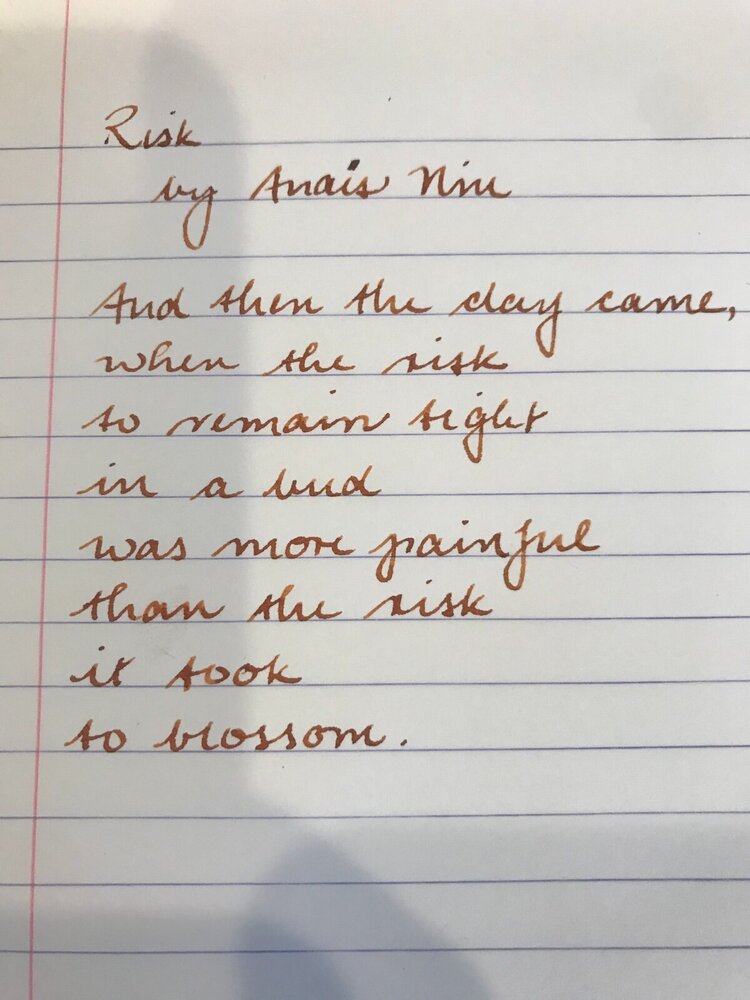 Risk
by Anais Nin
And then the day came,
when the risk
to remain tight
in a bud
was more painful
than the risk
it took
to blossom.